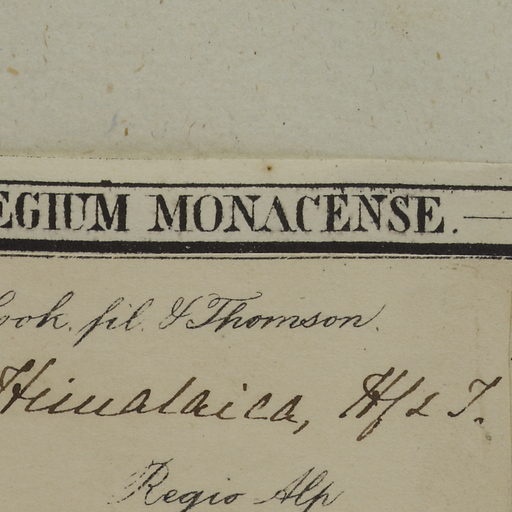 EGIUM MONACENSE.
ook. fil. & Thomson.
Himalaica, Hf & T.
Regio Alp